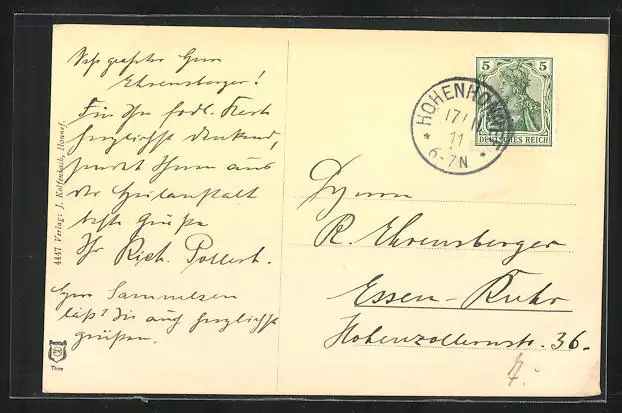 Sehr geehrter Herr
Ehrensberger!
Für Ihre frdl. Karte
herzlichst dankend,
sendet Ihnen aus
der Heilanstalt
beste Grüße
Ihr Rich. Pollert.
Herr
läßt Sie auch herzlichst
grüßen.
4447 Verlag: J. Kolfenbach, Honnef.
HOHENHONNEF
17/
11
6-7N
5 5
DEUTSCHES REICH
Herrn
R. Ehrensberger
Essen-Ruhr
Hohenzollernstr. 36.